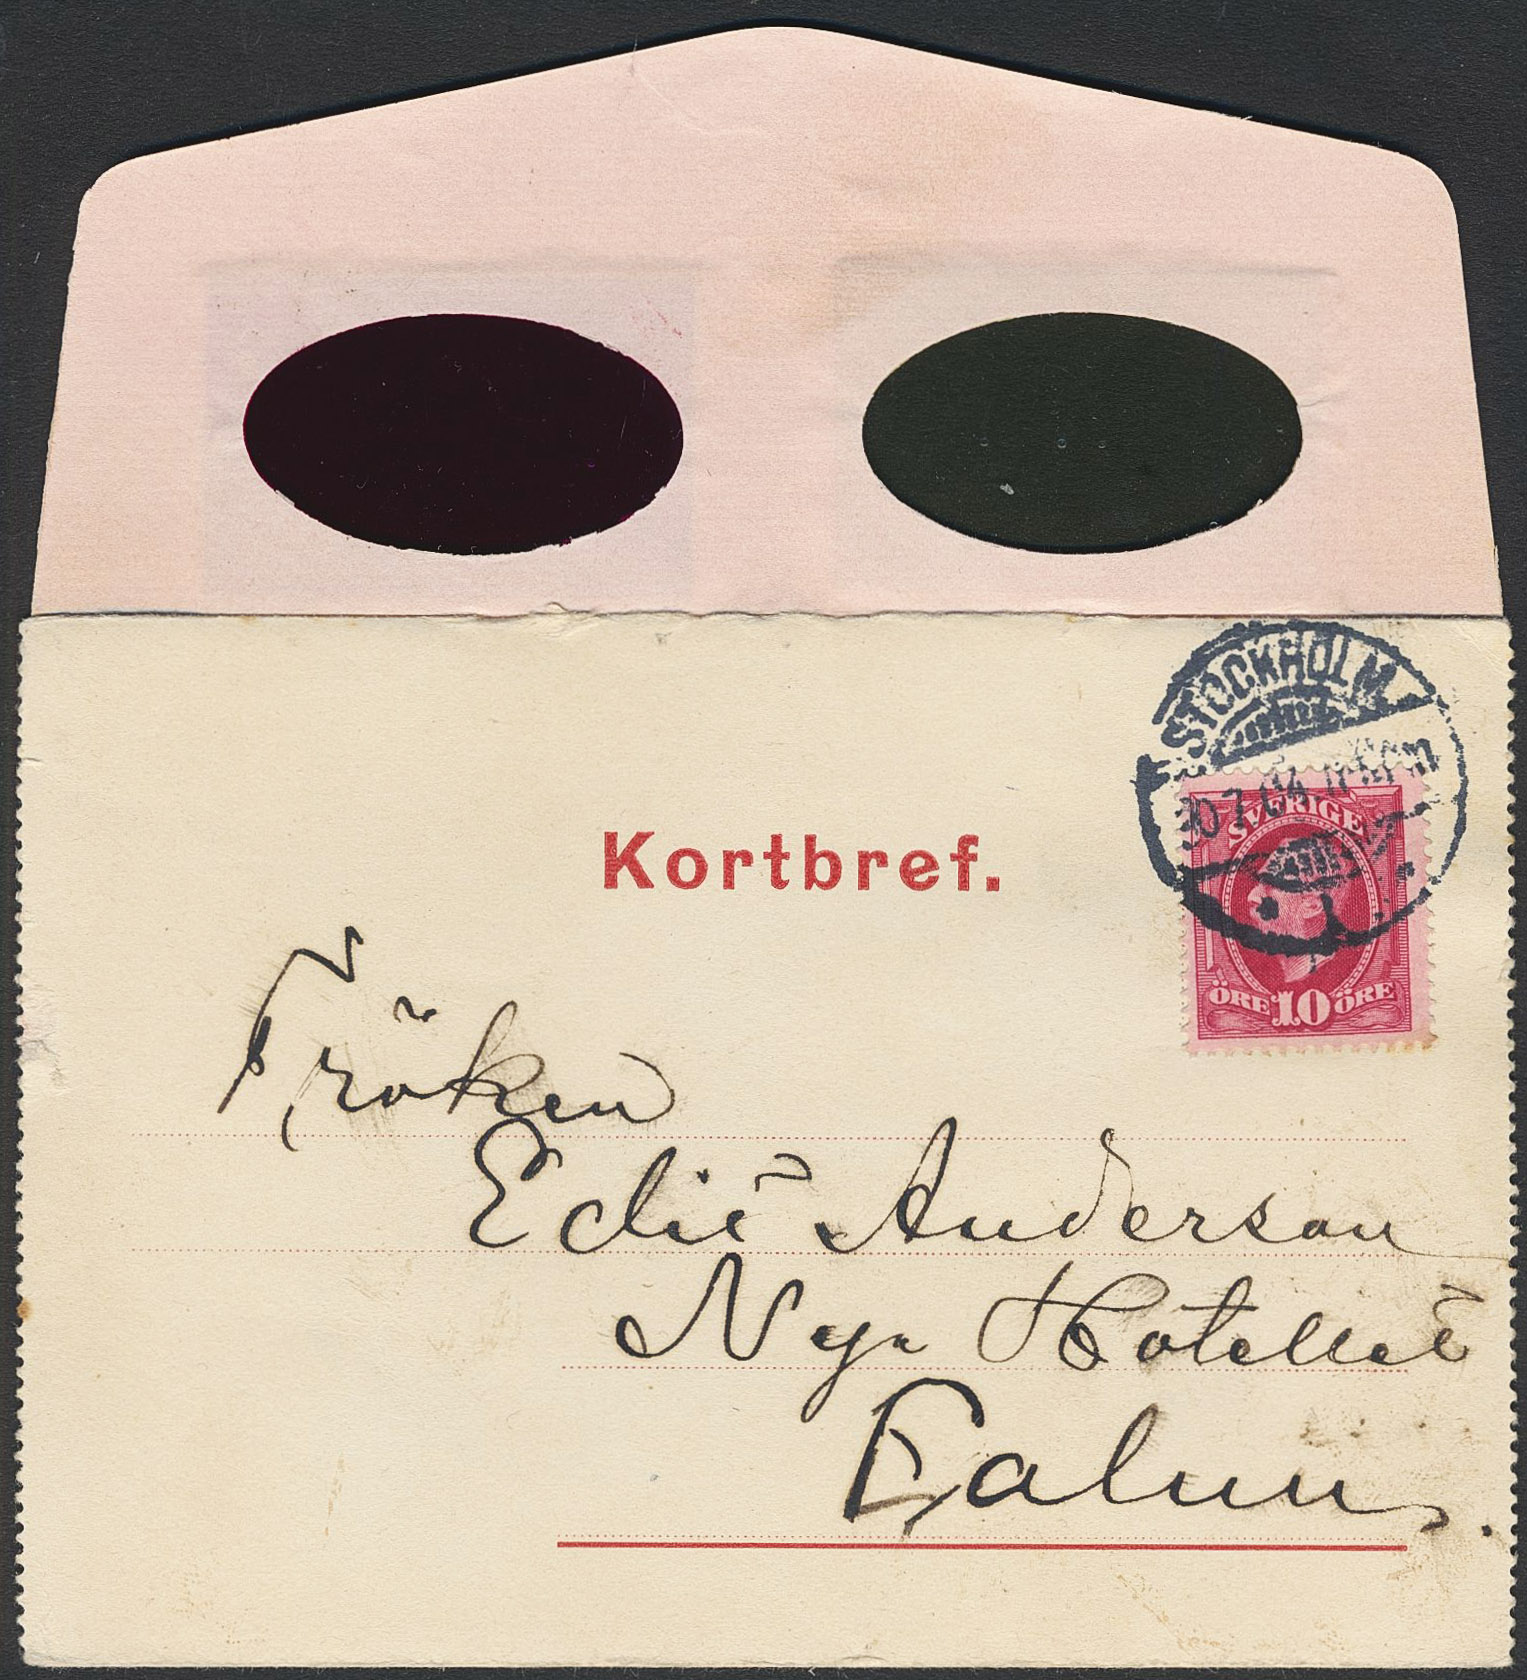 STOCKHOLM
30.7.04
SVERIGE
ÖRE 10 ÖRE
Kortbref.
Fröken
Edit Anderson
Nya Hotellet
Falun.